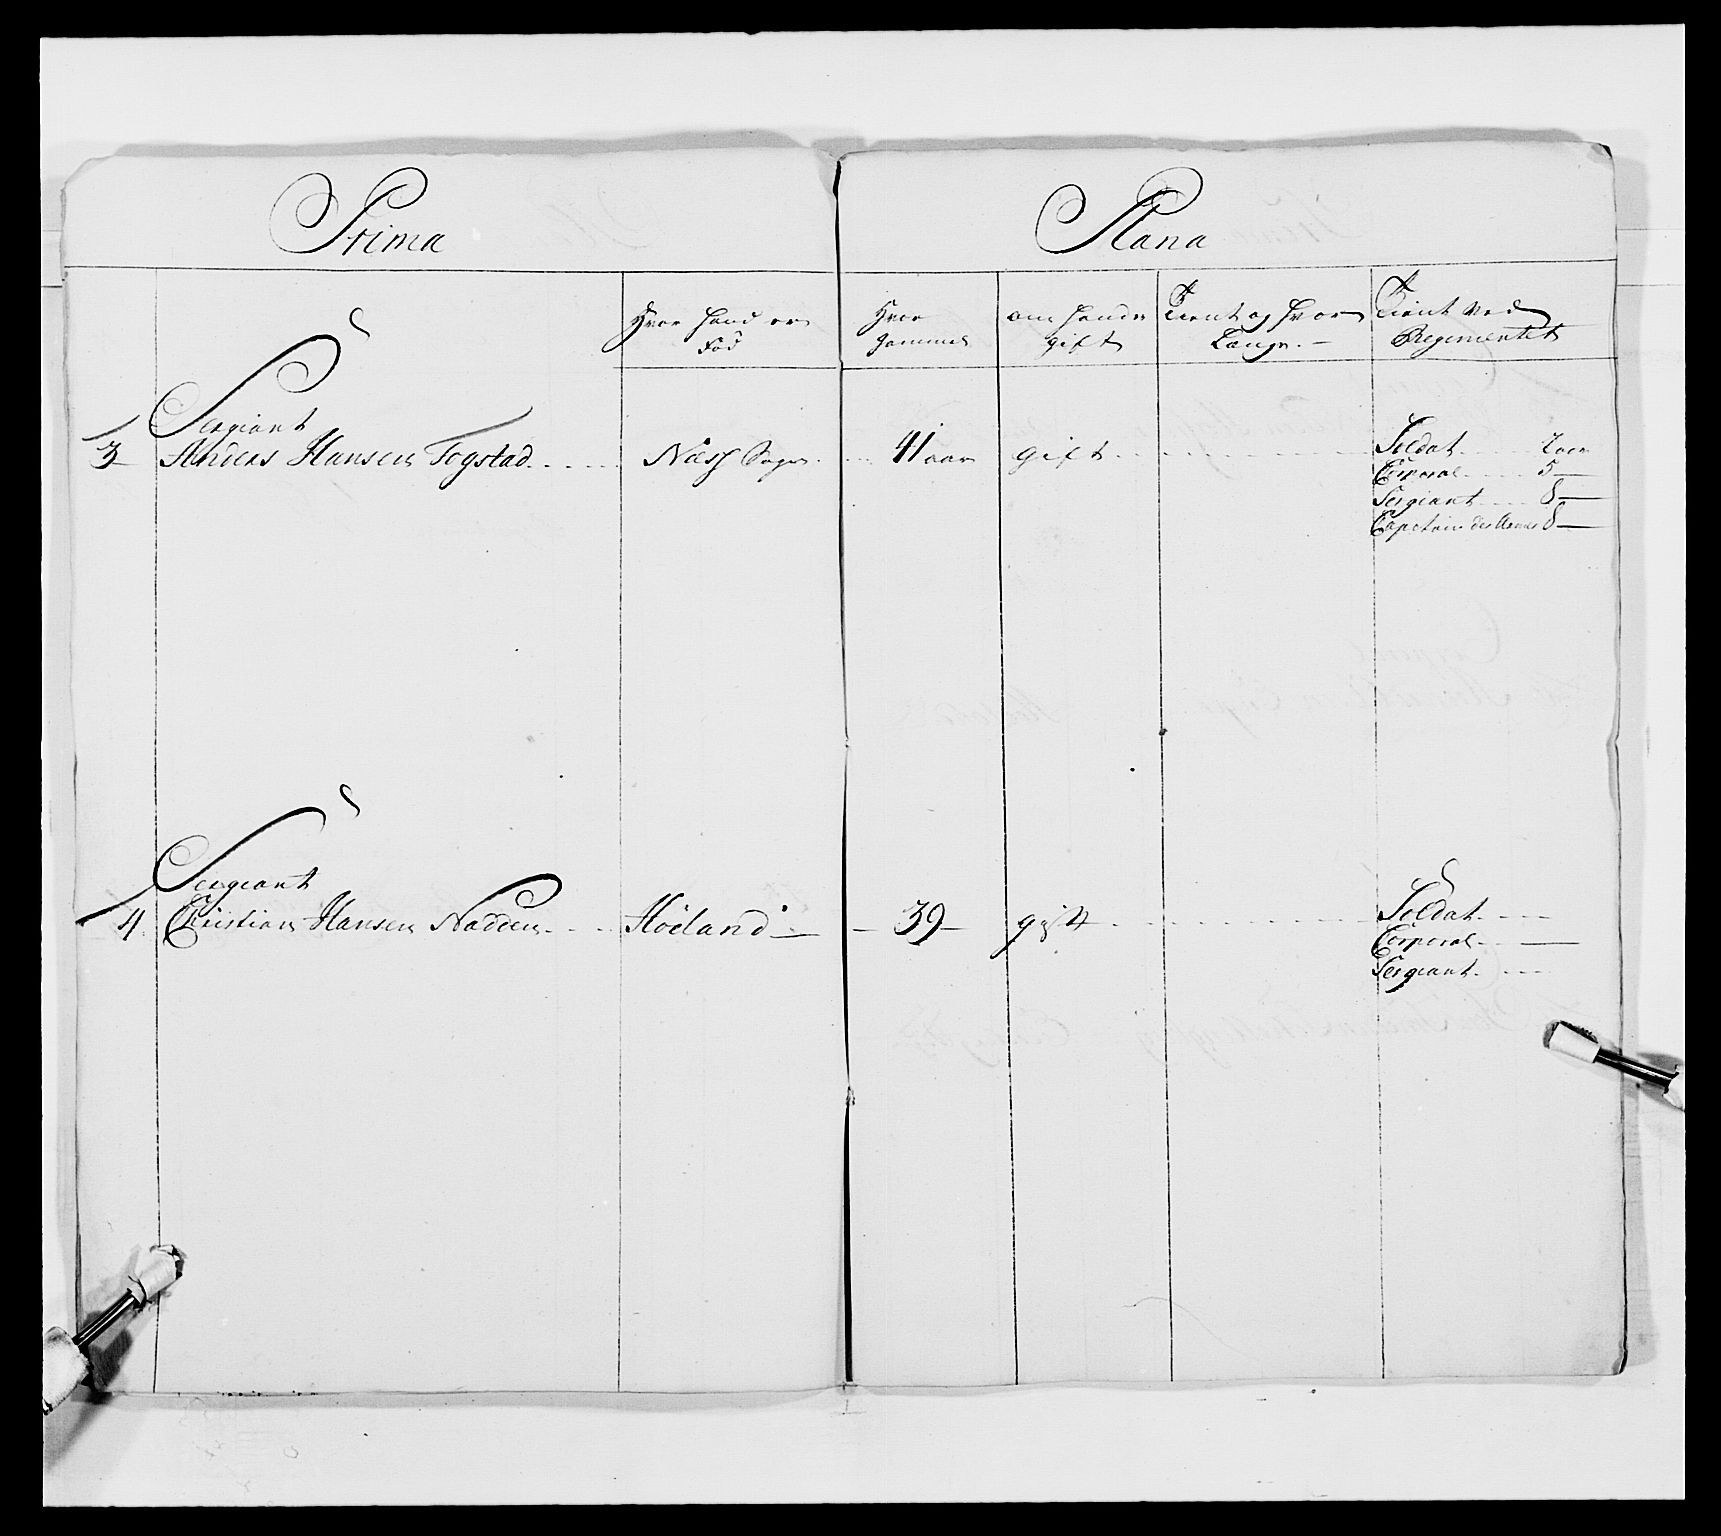 Prima Plana
Hvor hand er
Fød
Hvor
gammel
om hand er
gift
Tient og hvor
Længe.
Tient ved
Regimentet
Sergiant
3 Anders Hansen Fogstad Næss Sogn 41 aar gift Soldat 2 aar
Corporal 5
Sergiant 8
Capitain des Armes 8
Sergeant
4. Christian Hansen Nadden Høeland 39 gift Soldat
Corporal
Sergeant